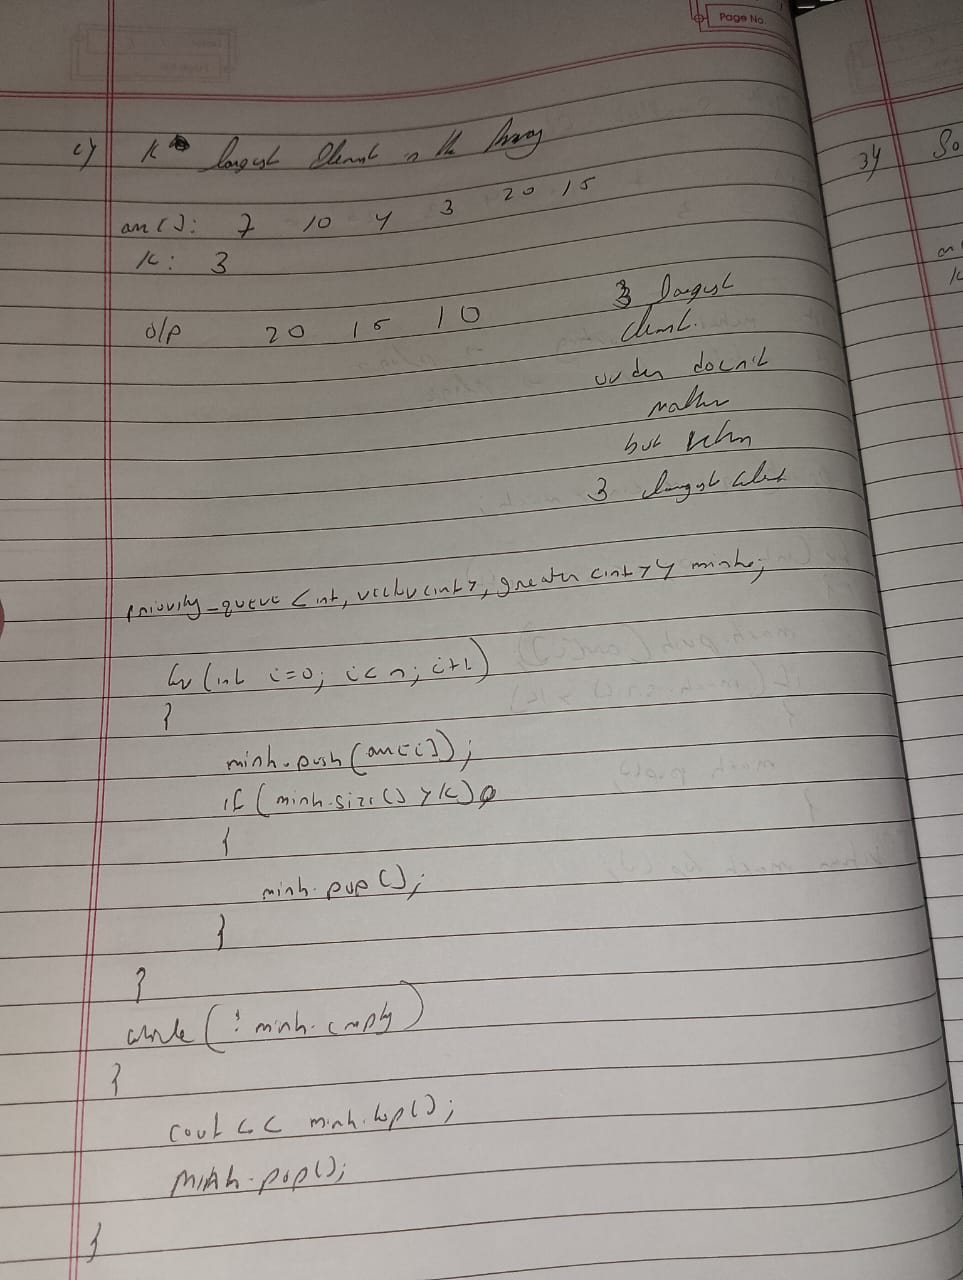 Page No.
2) K largest Element in the Array
arr[]: 7 10 4 3 20 15
K: 3
o/p 20 15 10
3 largest
element.
order doesn't
matter
but return
3 largest
priority_queue <int, vector<int>, greater<int>> minh;
for (int i=0; i<n; i++)
{
minh.push(arr[i]);
if (minh.size() > k)
{
minh.pop();
}
}
while (! minh.empty)
{
cout << minh.top();
minh.pop();
}
3)